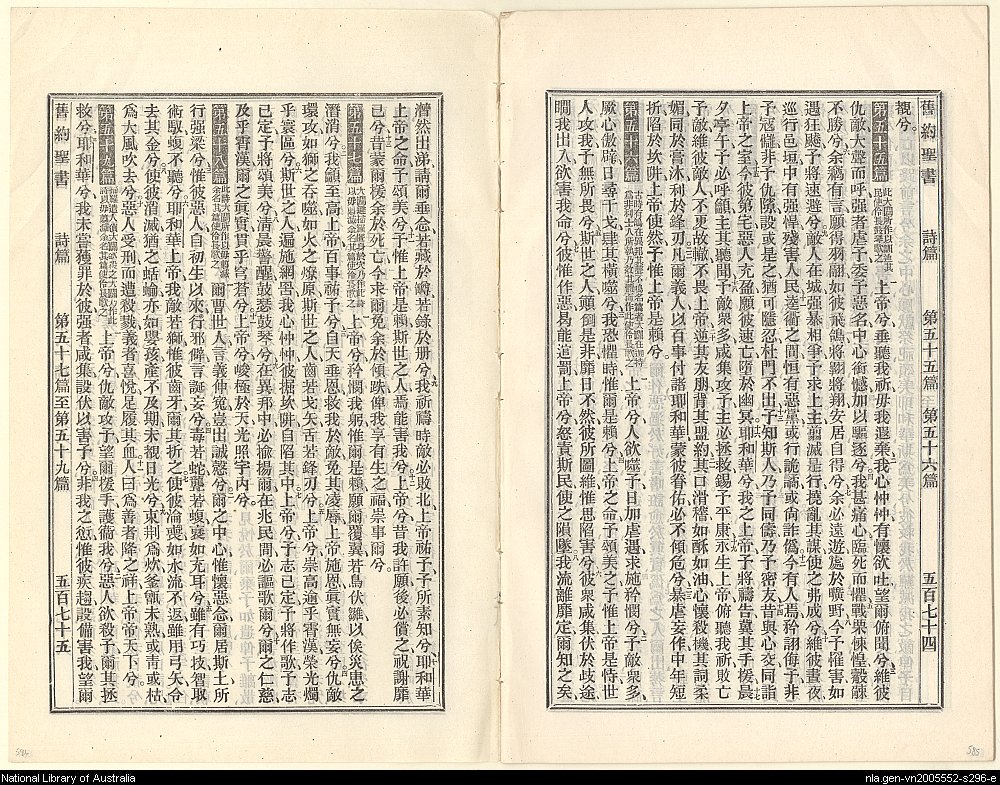 舊約聖書 詩篇 第五十五篇至第五十六篇 五百七十四
覩兮。
第五十五篇 此大闢所作以訓迪其民使伶長鼓琴歌之 上帝兮垂聽我祈毋我遐棄我心忡忡有懷欲吐望爾俯聞兮維彼
仇敵大聲而呼强者虐予委予惡名中心銜憾加以驅逐兮我甚痛心臨死而懼戰栗悚惶觳觫
不勝兮余竊有言願得羽翮如彼飛鴿將翱將翔安居自得兮余必遠遊處於曠野今予罹害如
遇狂飈予將速避兮敵人在城强暴相爭予求上主翦滅是行撓亂其謀使之弗成兮維彼晝夜
巡行邑垣中有强悍殘害人民逵衢之間恒有惡黨或行詭譎或尙詐僞今有人焉矜詡侮予非
予寇讎非予仇隙設或是之猶可隱忍杜門不出予知斯人乃予同儔乃予密友昔與心交同詣
上帝之室今彼第宅惡人充盈願彼速亡墮於幽冥耶和華兮我之上帝予將禱告冀其手援晨
夕亭午予必呼籲主其聽聞予敵衆多咸集攻予主必拯救錫予平康永生上帝俯聽我祈敗亡
予敵維彼敵人不更故轍不畏上帝逆其友朋背其盟約其口滑稽如酥如油心懷殺機其詞柔
媚同於膏沐利於鋒刃凡爾義人以百事付諸耶和華蒙彼眷佑必不傾危兮暴虐妄作中年短
折陷於坎阱上帝使然予惟上帝是賴兮。
第五十六篇 上帝兮人欲噬予日加虐遇求施矜憫兮予敵衆多
厥心傲 日尋干戈肆其橫噬兮我恐懼時惟爾是賴兮上帝之命予頌美之予惟上帝是恃世
人攻我予無所畏兮斯世之人顛倒是非靡日不然彼所圖維惟思陷害兮彼衆咸集伏於歧途
瞯我出入欲害我命兮彼惟作惡曷能逭罰上帝兮怒責斯民使之隕墜我流離靡定爾知之矣
潸然出涕請爾垂念若藏於罇若錄於册兮我祈禱時敵必敗北上帝祐予予所素知兮耶和華
上帝之命予頌美兮予惟上帝是賴斯世之人焉能害我兮上帝兮昔我許願後必償之祝謝靡
已兮昔蒙爾援余於死亡今求爾免余於傾跌俾我享有生之福崇事爾兮。
第五十七篇 上帝兮矜憫我躬惟爾是賴願爾覆翼若鳥伏雛以俟災患之
潛消兮我籲至高上帝百事祐予兮自天垂恩救我於敵免其凌辱上帝施恩眞實無妄兮仇敵
環攻如獅之吞噬如火之燎原斯世之人齒若戈矢舌若鋒刃兮上帝兮崇高逾乎霄漢榮光燭
乎寰區兮斯世之人遍施網罟我心忡忡彼掘坎阱自陷其中上帝兮予志已定予將作歌予志
已定予將頌美兮淸晨警醒鼓瑟鼓琴兮在異邦中必揄揚爾在兆民間必謳歌爾兮爾之仁慈
及乎霄漢爾之眞實貫乎穹蒼兮上帝兮峻極於天光照宇內兮。
第五十八篇 爾曹世人言義伸寃豈出誠慤兮爾之中心惟懷惡念爾居斯土所
行强梁兮惟彼惡人自初生以來行邪僻言誕妄兮毒若蛇蠆若蝮裒如充耳兮雖有巧技智取
術馭蝮不聽兮耶和華上帝我敵若獅惟彼齒牙爾其折之使彼淪喪如水流不返雖用弓矢令
去其金兮使彼消滅猶之蛞蝓亦如嬰孩產不及期未覩日光兮束荆爲炊釜甑未熟或青或枯
爲大風吹去兮惡人受刑而遭殺戮義者喜悅足履其血人曰爲善者降之祥上帝帝天下兮。
第五十九篇 上帝兮仇敵攻予望爾援手護衞我兮惡人欲殺予爾其拯
救兮耶和華兮我未嘗獲罪於彼强者咸集設伏以害予兮非我之愆惟彼疾趨設備害我望爾
舊約聖書 詩篇 第五十七篇至第五十九篇 五百七十五
National Library of Australia
nla.gen-vn2005552-s296-e